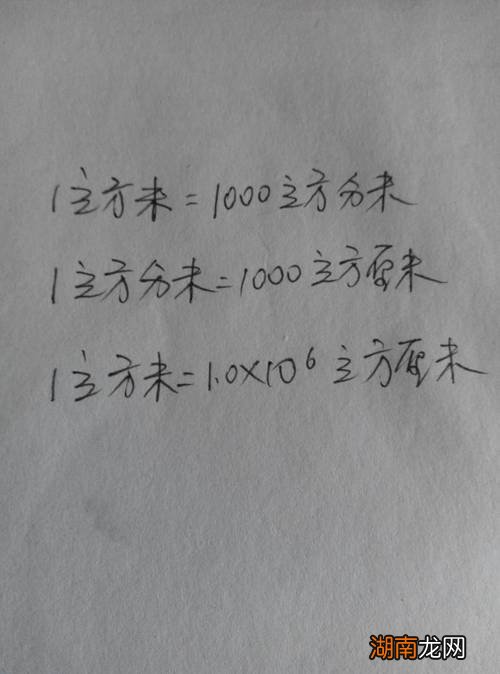 1立方米=1000立方分米
1立方分米=1000立方厘米
1立方米=1.0×10⁶立方厘米
湖南龙网